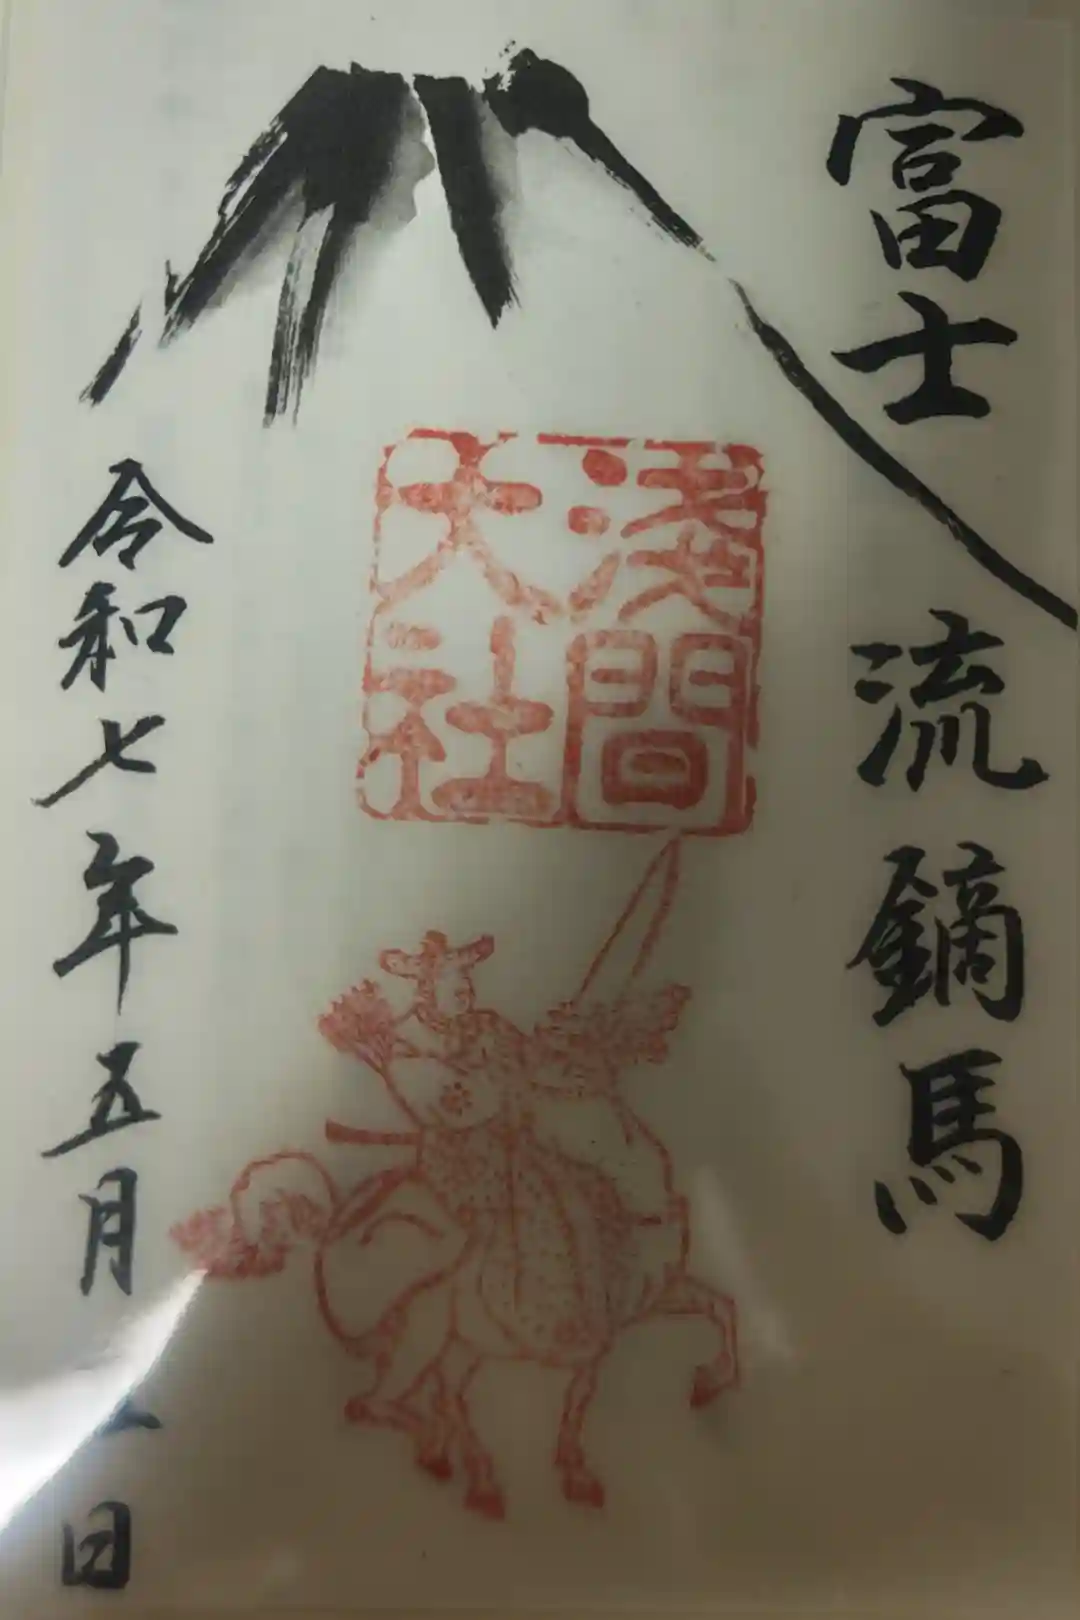 富士流鏑馬
浅間
大社
令和七年五月
日